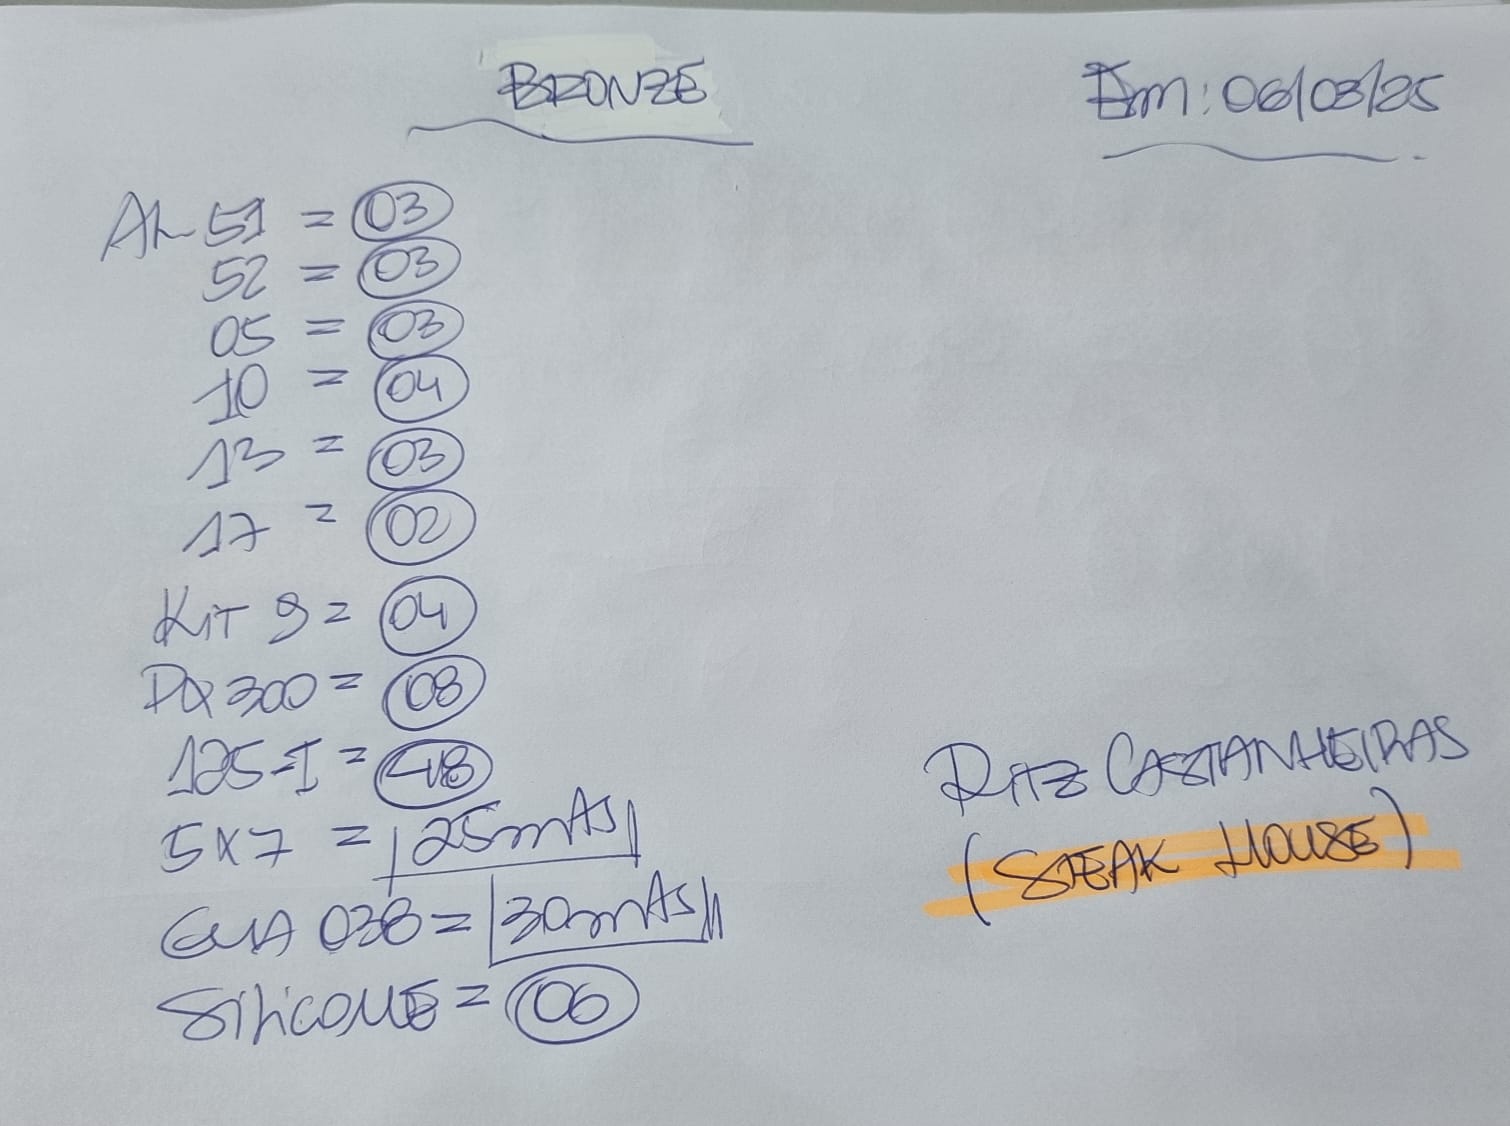 BRONZE
Em: 06/03/25
AL 51 = 03
52 = 03
05 = 03
10 = 04
13 = 03
17 = 02
KIT 9 = 04
PQ 300 = 08
125-I = 48
5x7 = 25mts
GUA 038 = 30mts
SiliCONE = 06
RITZ CASTANHEIRAS
(STEAK HOUSE)